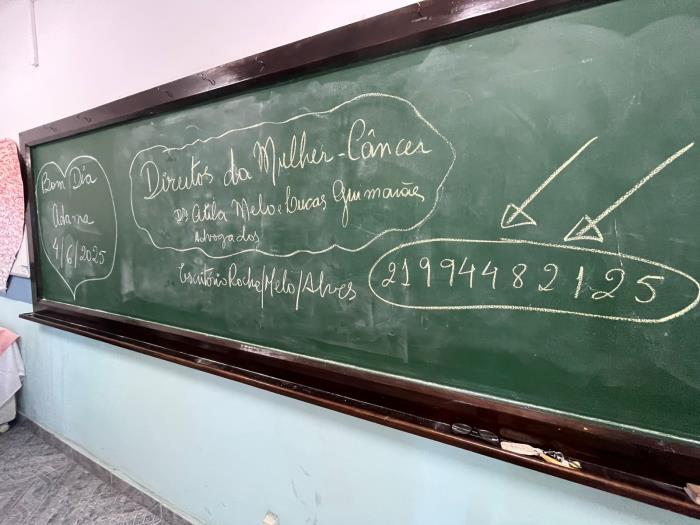 Bom Dia
Adama
4/6/2025
Direitos da Mulher - Câncer
Drs Atila Melo e Lucas Guimarães
Advogados
Escritório Rocha/Melo/Alves
21994482125